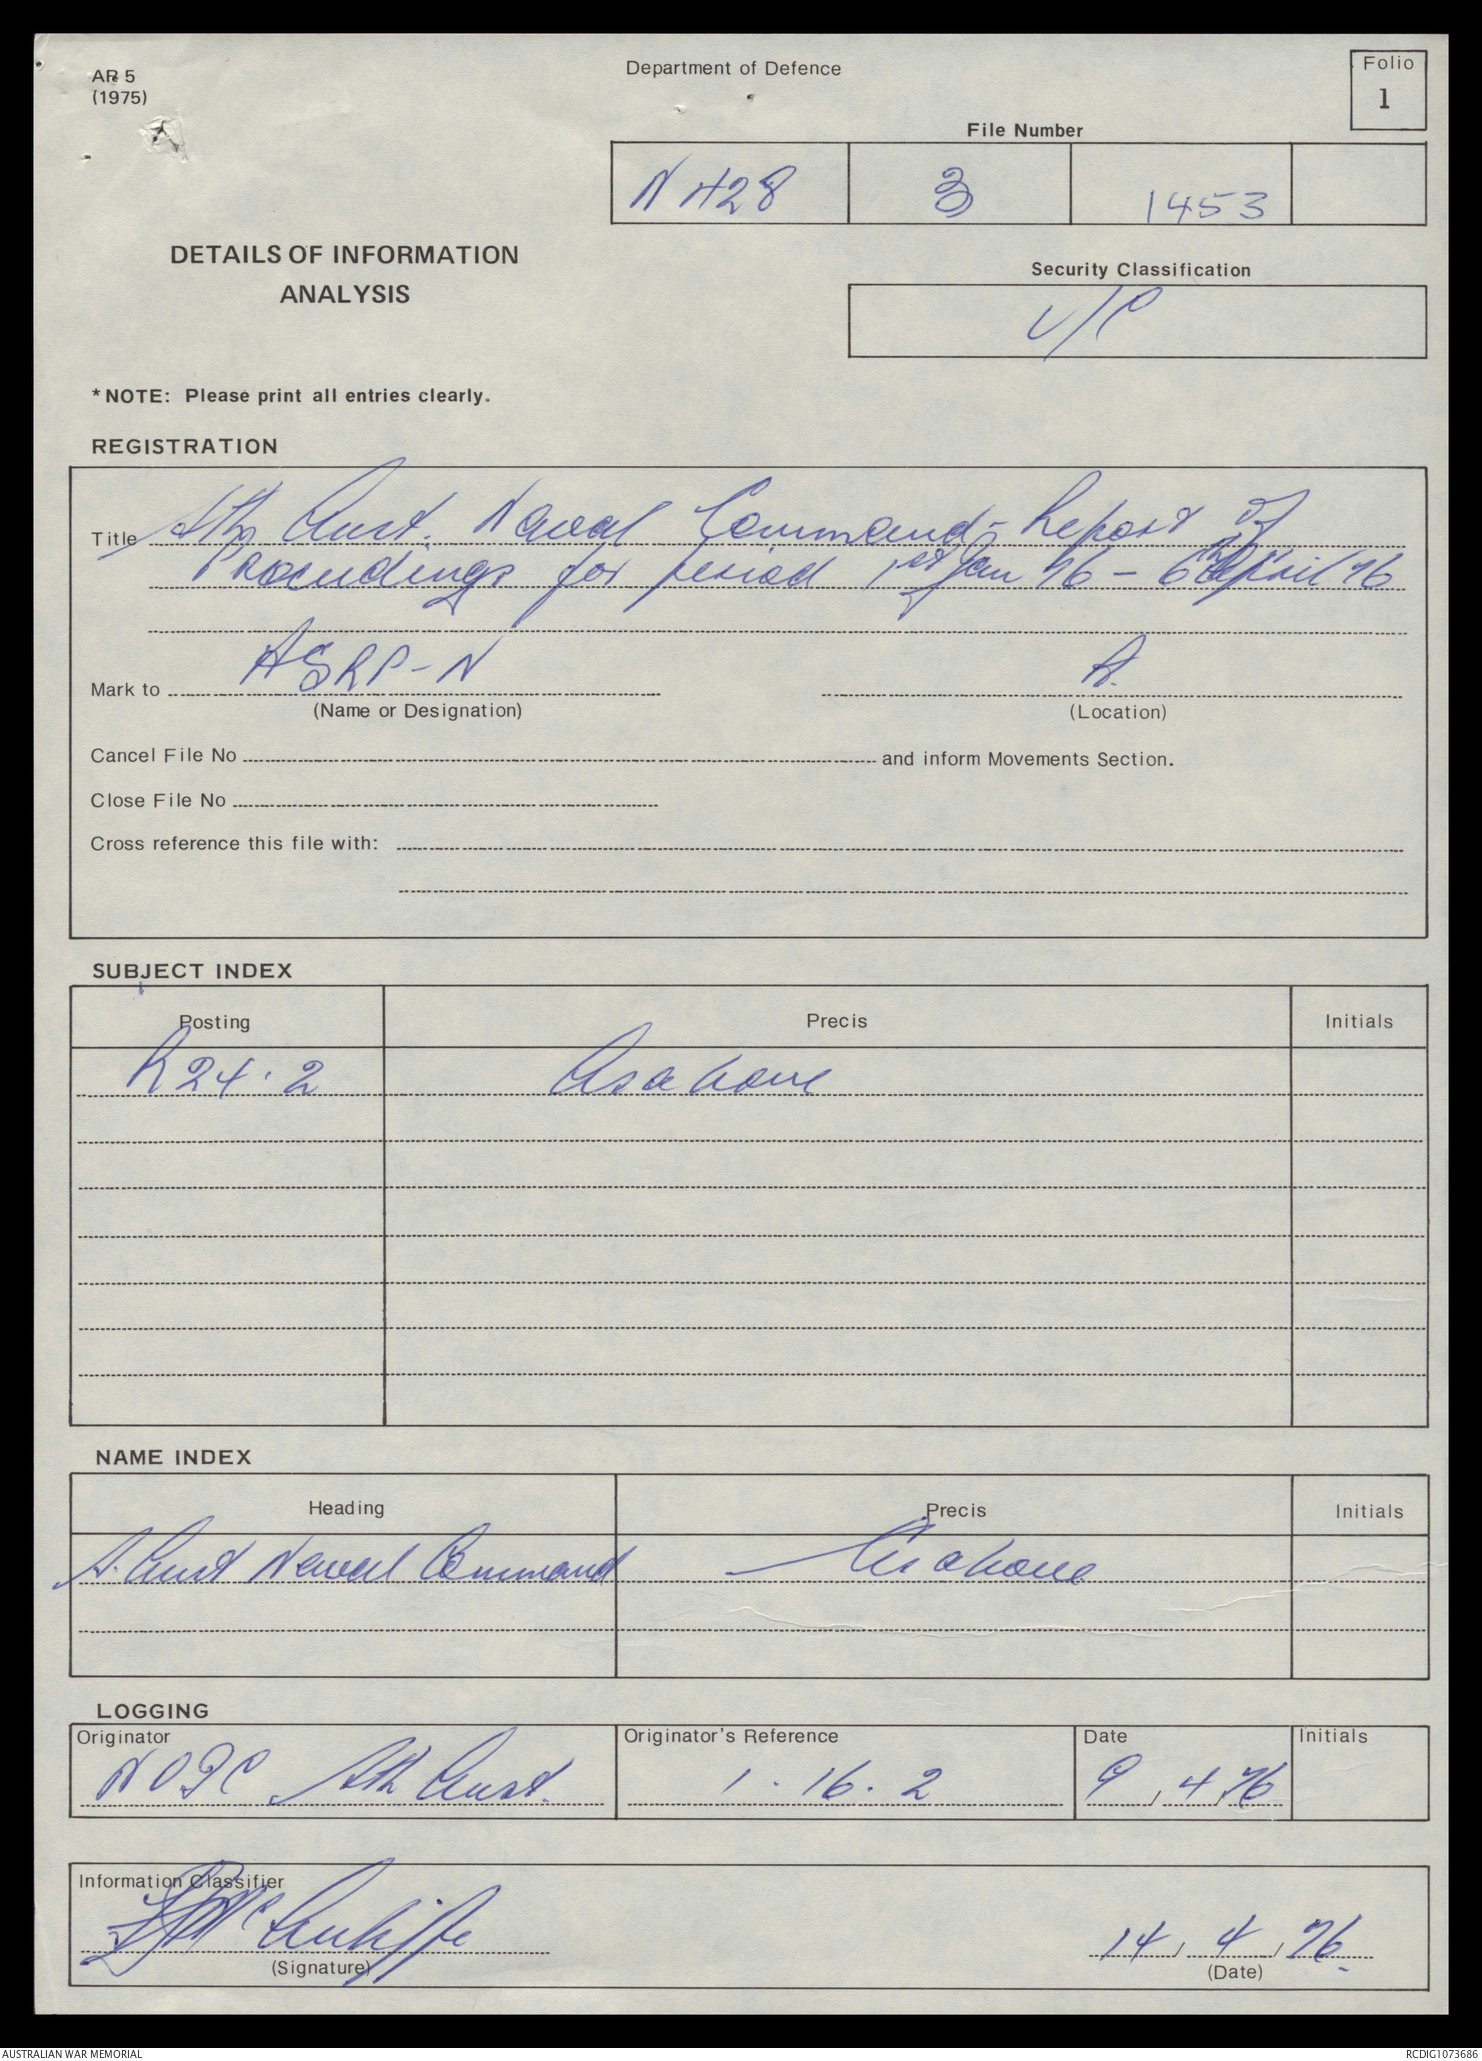 AR 5
(1975)
Department of Defence
Folio
1
File Number
N H28 3 1453
DETAILS OF INFORMATION
ANALYSIS
Security Classification
U/C
*NOTE: Please print all entries clearly.
REGISTRATION
Title Sth Aust. Naval Command - Report of
Proceedings for period 1st Jan 76 - 6th April 76
Mark to ASRP-N A.
(Name or Designation) (Location)
Cancel File No and inform Movements Section.
Close File No
Cross reference this file with:
SUBJECT INDEX
Posting Precis Initials
R24.2 As above
NAME INDEX
Heading Precis Initials
S. Aust Naval Command As above
LOGGING
Originator Originator's Reference Date Initials
NOIC Sth Aust. 1.16.2 9, 4, 76
Information Classifier
14, 4, 76
(Signature) (Date)
AUSTRALIAN WAR MEMORIAL RCDIG1073686